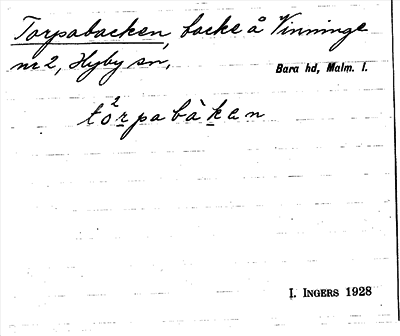 Torpabacken, backe å Vinninge
nr 2, Hyby sn,
Bara hd, Malm. l.
tò²rpabàkan
I. INGERS 1928